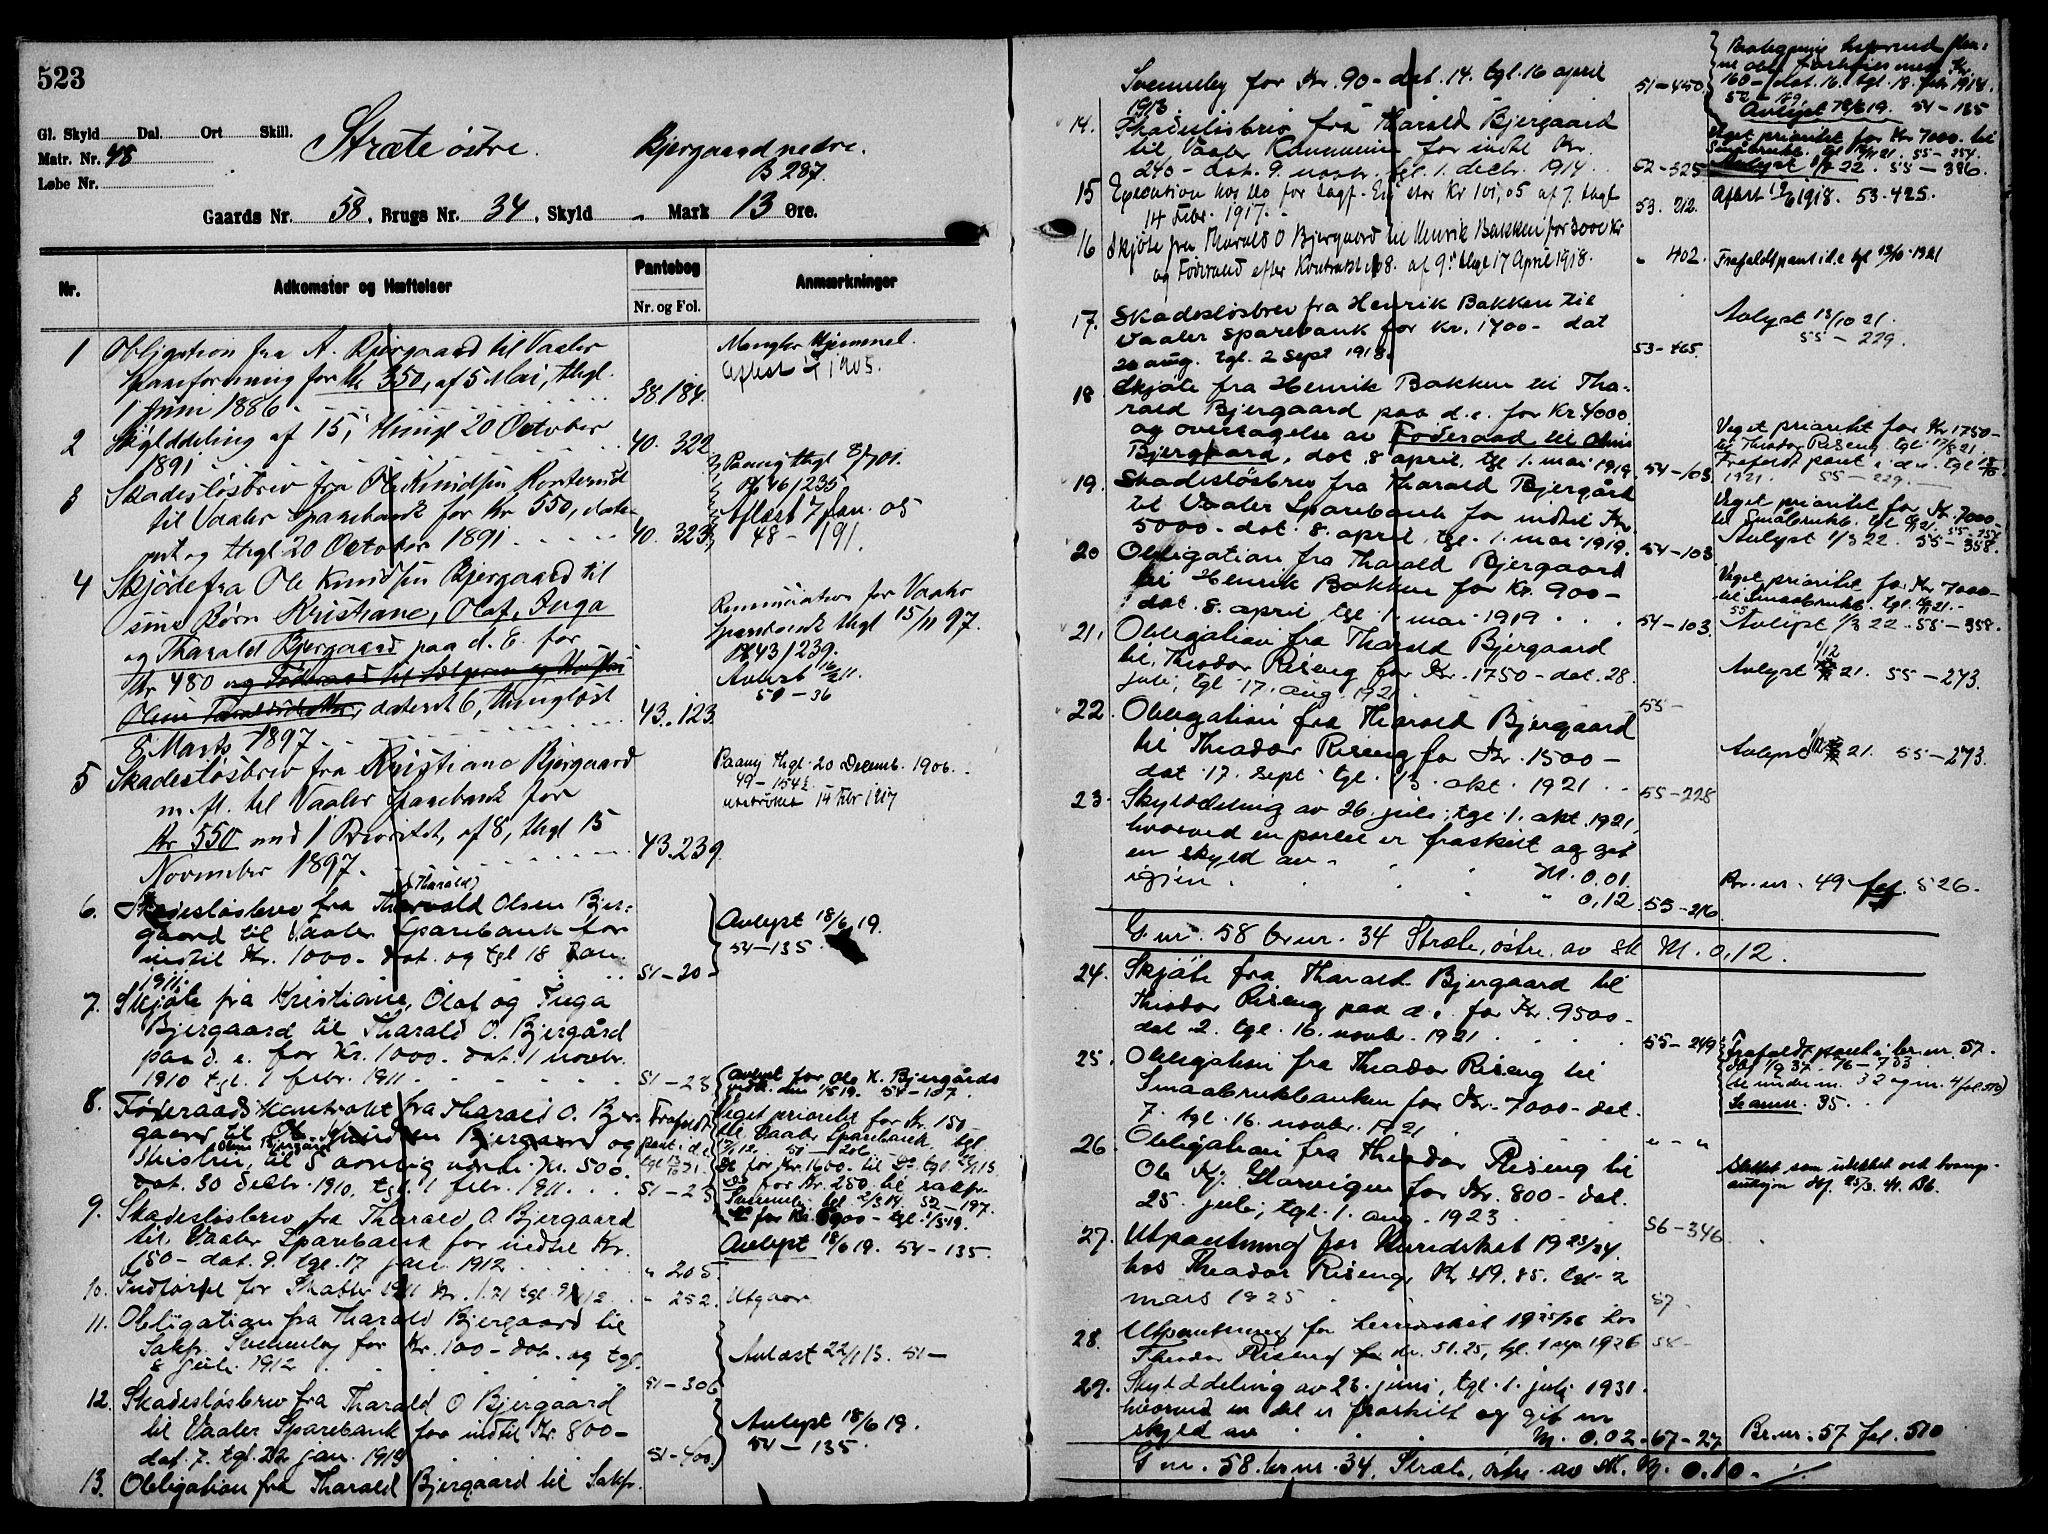 523
Gl. Skyld Dal. Ort Skill.
Matr. Nr. 48
Løbe Nr.
Stræte østre. Bjergaard nedre.
B 287.
Gaards Nr. 58, Brugs Nr. 34, Skyld " Mark 13 Øre.
Nr. Adkomster og Hæftelser Pantebog Anmærkninger
Nr. og Fol.
1 Obligation fra A. Bjergaard til Vaaler
for Kr 350, af 5 Mai, thgl.
1 Juni 1886. 38.184.
Mangler Hjemmel.
Aflæst 1905.
2 Skylddeling af 15, thingl 20 October
1891 40. 322
3 Skadesløsbrev fra Ole Knudsen
til Vaaler Sparebank for Kr 550, date-
ret og thgl 20 October 1891 40. 323
Paaany thgl 8/7 01.
Pb 46/235
Aflæst 7 Jan. 05
48 - 191.
4 Skjøde fra Ole Knudsen Bjergaard til
sine Børn Kristiane, Olaf, Inga
og Tharald Bjergaard paa d. E. for
Kr 480 og Føderaad til
dateret 6, thinglæst
8 Marts 1897. 43.123
Renunciation for Vaaler
Sparebank thgl 15/11 97.
Pb 43/239.
Avlæst 16/2 11.
50 - 36
5 Skadesløsbrev fra Kristiane Bjergaard
m. fl. til Vaaler Sparebank for
Kr 550 med 1 Prioritet, af 8, thgl 15
November 1897. 43.239
Paany thgl. 20 Decemb. 1906.
49 - 154
14 Febr 1917
(Tharald)
6. Skadesløsbrev fra Thorvald Olsen Bjer-
gaard til Vaaler Sparebank for
indtil Kr. 1000 - dat. og tgl 18 Jan.
1911. 51 - 20 -
Avlyst 18/6 19.
54 - 135.
7. Skjøte fra Kristiane, Olaf og Inga
Bjergaard til Tharald O. Bjergård
paa d. e. for Kr. 1000. dat. 1 novbr.
1910 tgl. 1 febr. 1911. 51 - 23
8. Føderaadskontrakt fra Tharald O. Bjer-
gaard til Ole Knudsen Bjergaard og
hustru, til 5 aarlig værdi Kr. 500.
dat. 30 decbr. 1910, tgl. 1 febr. 1911. 51 - 25
Frafaldt
pant. i d. e.
Avlyst for Ole K. Bjergårds
vedk. den 1/5 19. 54 - 107.
Veget prioritet for Kr. 150 -
til Vaaler Sparebank. tgl.
17/1 12. 51 - 206.
Do for Kr. 1600. til Do tgl.
Do for Kr. 250 til sakfr.
Svenneby tgl 2/3 14. 52 - 197.
Do for Kr. 5000 - tgl. 1/5 19.
9. Skadesløsbrev fra Tharald O Bjergaard
til Vaaler Sparebank for indtil Kr.
150 - dat. 9. tgl. 17 jan. 1912 " 205.
Avlyst 18/6 19. 54 - 135.
10. Indførsel for Skatter 1911 Kr. 1.21 tgl. " 252.
Utgaar
11. Obligation fra Tharald Bjergaard til
Sakfr. Svenneby for Kr. 100 - dat. og tgl.
8 juli 1912 51 - 306
Avlæst 22/1 13. 51 -
12. Skadesløsbrev fra Tharald O Bjergaard
til Vaaler Sparebank for indtil Kr. 800 -
dat. 7. tgl. 22 jan. 1913 51 - 400
Avlyst 18/6 19.
54 - 135.
13. Obligation fra Tharald Bjergaard til Sakfr.
Svenneby for Kr. 90 - dat. 14. tgl. 16 april
1913 51 - 450.
160 - dat. 16. tgl. 18. feb. 1914.
52 - 189.
Avlyst 18/6 19. 54 - 135
14. Skadesløsbrev fra Tharald Bjergaard
til Vaaler Kommune for indtil Kr.
240 - dat. 9. novbr. tgl. 1. decbr. 1914. 52 - 325
Veget prioritet for Kr 7000. til
Småbrukb. tgl 16/11 21. 55 - 254.
Avlyst 22. 55 - 386.
15 Execution hos Do for sagf. stor Kr 101,05 af 7. thgl
14 Febr. 1917. 53. 212.
Aflæst 1918. 53 - 425.
16 Skjøte fra Tharald O Bjergaard til Henrik Bakken for 3000 Kr
og Føderaad efter Kontrakt No 8. af 9. thgl 17 April 1918. " 402.
Frafaldt pant i d. e tgl 13/10 1921
17. Skadesløsbrev fra Henrik Bakken til
Vaaler sparebank for kr. 1700 - dat
20 aug. tgl. 2 Sept 1918. 53 - 465.
Avlyst 13/10 21.
55 - 229.
18 Skjøte fra Henrik Bakken til Tha-
rald Bjergaard paa d. e. for Kr 4000
og overtagelse av Føderaad til Oline
Bjergaard, dat 8 april, tgl 1. mai 1919. 54 - 103
Veget prioritet for Kr. 1750 -
til Theodor Riseng tgl. 17/8 21.
Frafaldt pant i d. e. tgl 13/10
1921. 55 - 229.
19. Skadesløsbrev fra Tharald Bjergård
til Vaaler Sparebank for indtil Kr.
5000 - dat. 8. april, tgl. 1. mai 1919. 54 - 103
Veget prioritet for Kr. 7000 -
til Småbrukb. tgl 21. 55 - 254
Avlyst 1/3 22. 55 - 358.
20 Obligation fra Tharald Bjergaard
til Henrik Bakken for Kr. 900 -
dat. 8. april tgl. 1. mai 1919 54 - 103.
Veget prioritet for Kr 7000 -
til Smaabrukb. tgl. 21. -
Avlyst 1/3 22. 55 - 358.
21. Obligation fra Tharald Bjergaard
til Theodor Riseng for Kr. 1750 - dat. 28.
juli, tgl 17. aug. 1921 55 -
Avlyst 1/12 21. 55 - 273.
22. Obligation fra Tharald Bjergaard
til Theodor Riseng for Kr. 1500 -
dat. 17. sept. tgl. 13. okt. 1921 55 - 228
Avlyst 1/12 21. 55 - 273.
23. Skylddeling av 26. juli, tgl. 1. okt. 1921,
hvorved en parcel er fraskilt og git
en skyld av - M. 0.01.
igjen " 0,12. 55 - 216.
Br. nr. 49 fol. 526.
G. nr. 58 br. nr. 34 Stræte, østre. av sk. M. 0,12.
24. Skjøte fra Tharald Bjergaard til
Theodor Riseng paa d. e. for Kr. 9500 -
dat 2. tgl. 16. novbr. 1921 55 - 249
Frafaldt pant i br. nr. 57.
dat 1/9 37. 76 - 733
25. Obligation fra Theodor Riseng til
Smaabrukbanken for Kr. 7000 - dat.
7. tgl. 16. novbr. 1921 " - "
26. Obligation fra Theodor Riseng til
Ole Kj. Glorvigen for Kr. 800 - dat.
25. juli, tgl. 1. aug. 1923 56 - 346
Slettet som utslettet ved tvangs-
auksjon
27. Utpantning for Herredskat 1923/24.
hos Theodor Riseng, Kr 49.85. tgl. 2
mars 1925 57.
28. Utpantning for herredskat 1925/26 hos
Theodor Riseng for kr. 51.25, tgl. 1 1926 58 -
29. Skylddeling av 23. juni, tgl. 1. juli 1931.
hvorved en del er fraskilt og git en
skyld av M. 0.02 - 67 - 27
Br. nr. 57 fol. 510
G nr. 58. br nr. 34. Stræte, østre. av sk. M. 0.10. -